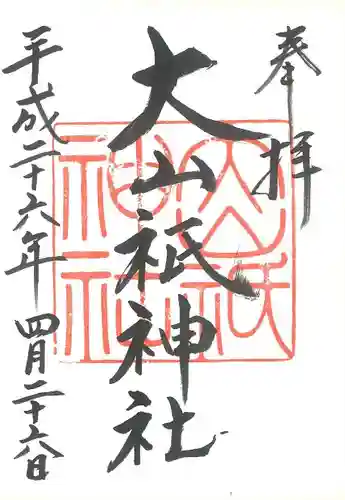 奉拝
大山祇神社
平成二十六年四月二十六日
大山祇
神社